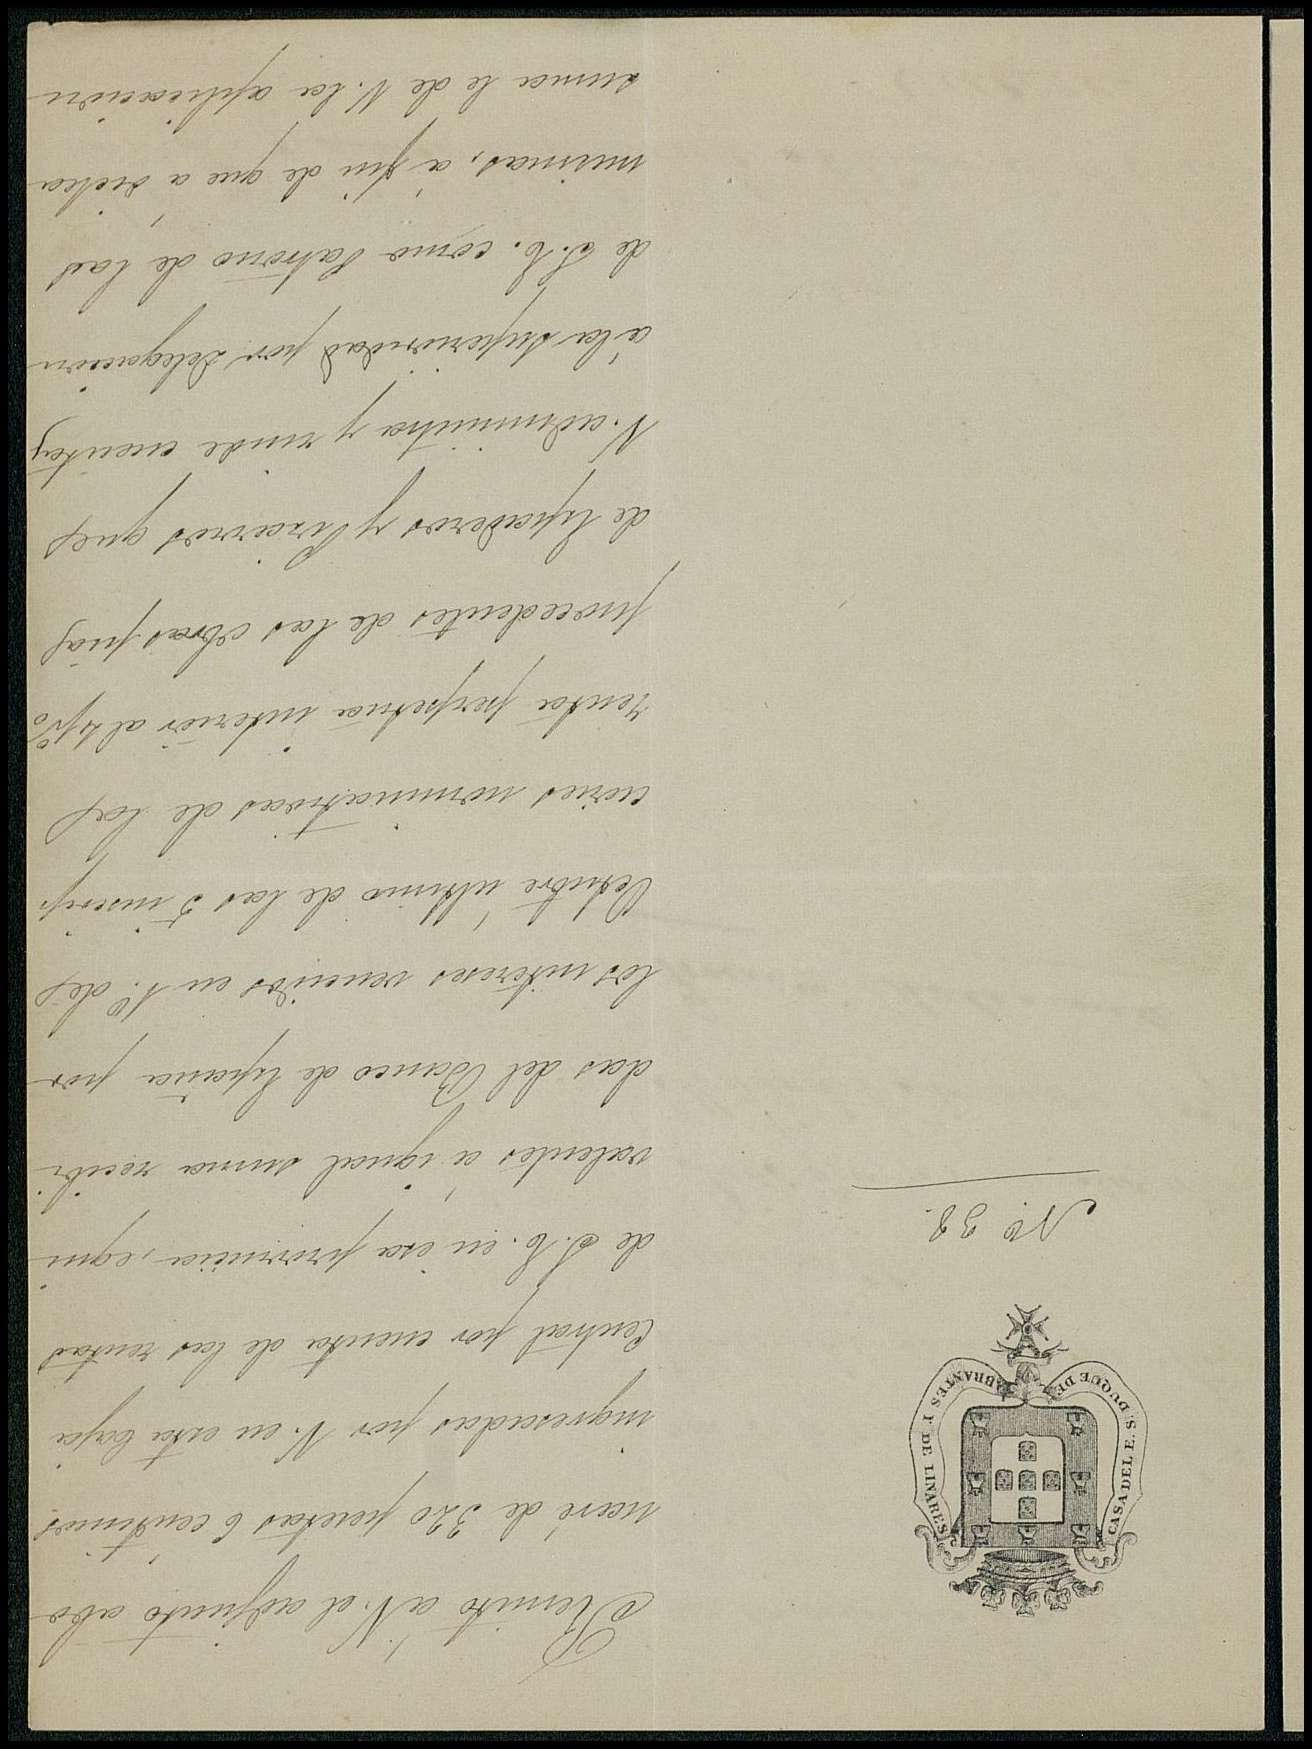 CASA DEL E. S. DUQUE DE ABRANTES Y DE LINARES
No. 38.
Remito á V. el adjunto abo-
naré de 320 pesetas 6 centimos
ingresadas por V. en esta Caja
Central por cuenta de las rentas
de S. E. en esa provincia, equi-
valentes á igual suma recibi-
das del Banco de España por
los intereses vencidos en 1º. de
Octubre último de las 5 inscrip-
ciones nominativas de la
renta perpetua interior al 4 p%
procedentes de las obras pias
de Espaderos y Pizarros que
V. administra y rinde cuentas
á la superioridad por delegacion
de S. E. como Patrono de las
mismas, á fin de que á dicha
suma le dé V. la aplicacion